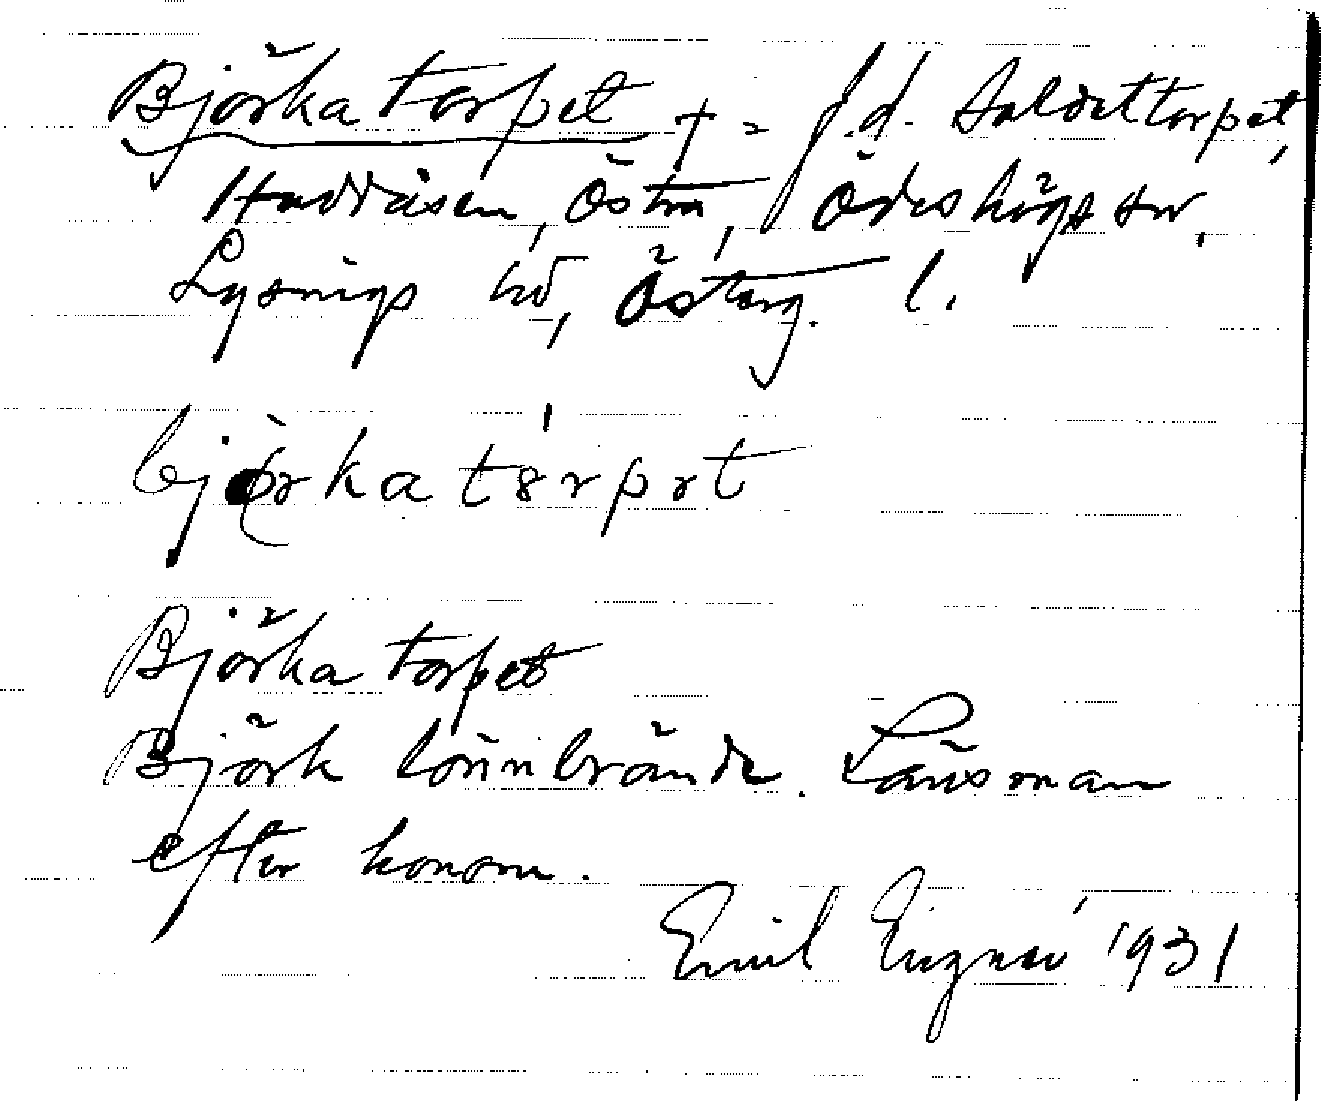 Björkatorpet + = f.d. Soldattorpet,
Haddåsen, Östra, Ödeshögs sn,
Lysings hd, Österg. l.
björkatorpet
Björkatorpet
Björk lönnbrände. Länsman
efter honom.
Emil 1931